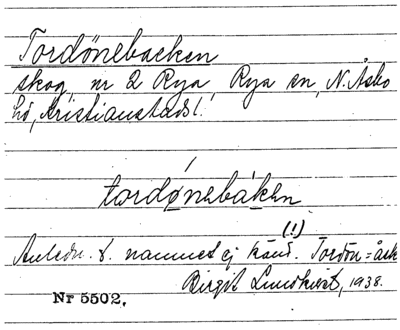 Tordönebacken
skog, nr 2 Rya, Rya sn, N. Åsbo
hd, Kristianstads l.
tordǿnebáken
(!)
Anledn. t. namnet ej känd. Tordön = åsk
Birgit Lundkvist, 1938.
Nr 5502.